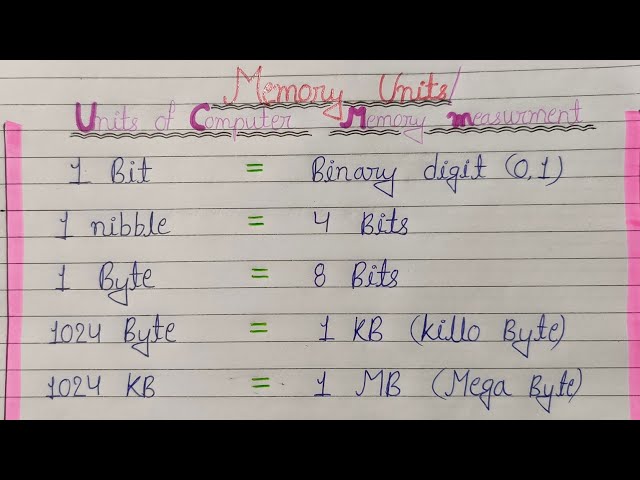 Memory Units/
Units of Computer Memory measurment
1 Bit = Binary digit (0,1)
1 nibble = 4 Bits
1 Byte = 8 Bits
1024 Byte = 1 KB (killo Byte)
1024 KB = 1 MB (Mega Byte)